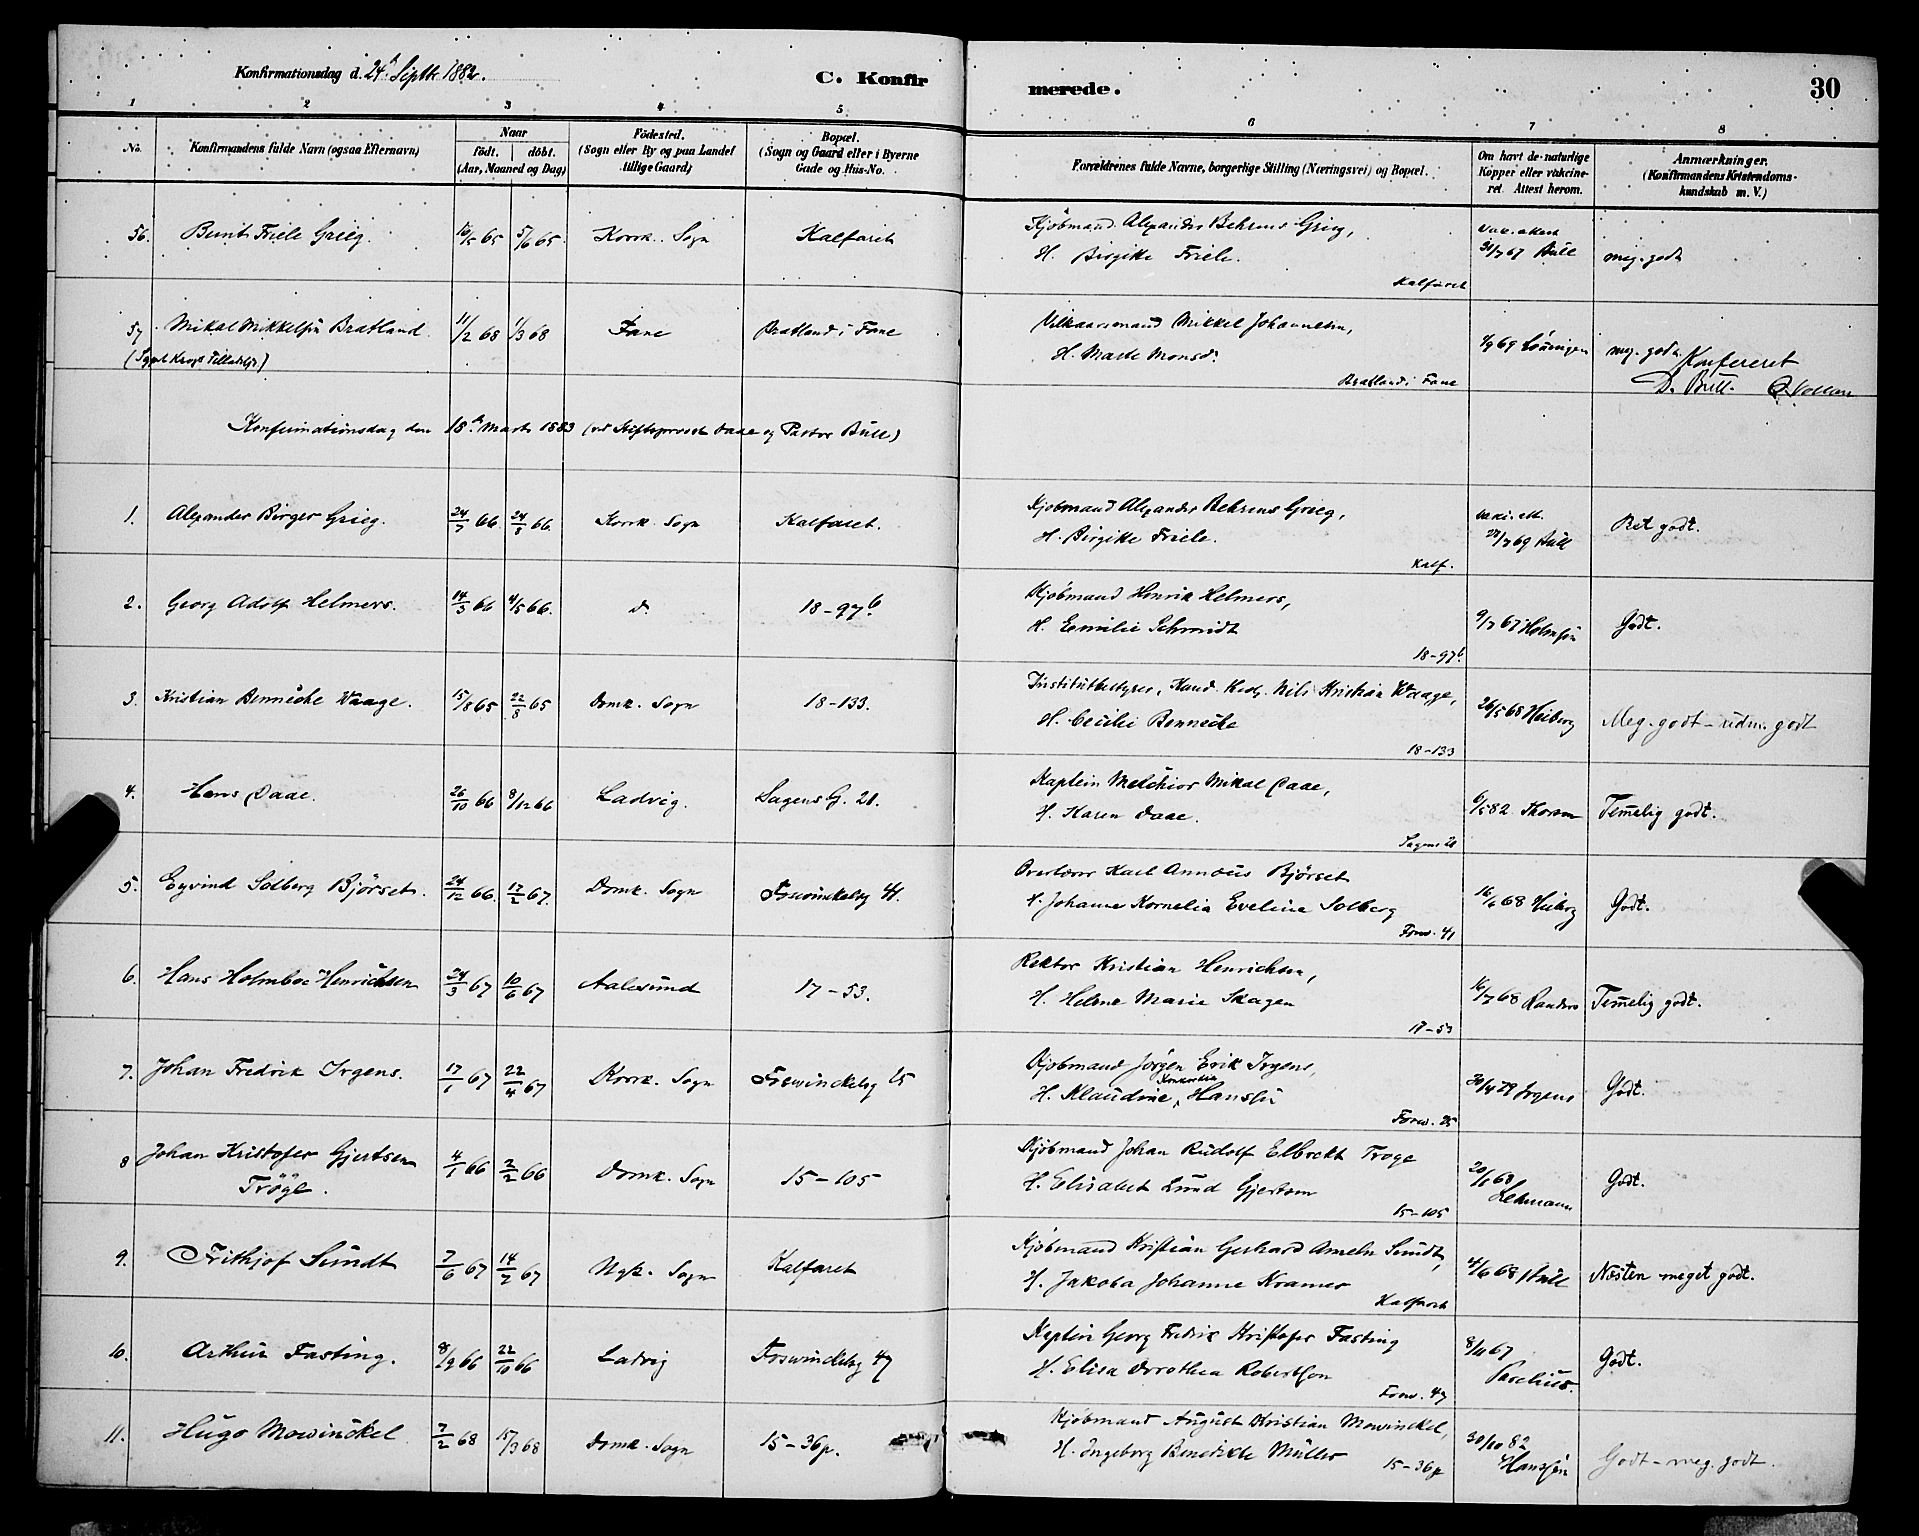 Konfirmationsdag d. 24de Septbr 1882. C. Konfir merede. 30
1 2 3 4 5 6 7 8
No. Konfirmandens fulde Navn (ogsaa Efternavn) Naar födt. döbt. (Aar, Maaned og Dag) Födested. (Sogn eller By og paa Landet tillige Gaard) Bopæl. (Sogn og Gaard eller i Byerne Gade og Hus-No. Forældrenes fulde Navne, borgerlige Stilling (Næringsvei) og Bopæl. Om havt de naturlige Kopper eller vakcineret. Attest herom. Anmærkninger. (Konfirmandens Kristendomskundskab m. V.)
56. Berent Friele Grieg. 10/5 65 5/6 65. Korsk. Sogn Kalfaret Kjøbmand Alexander Behrens Grieg, vak. attest
H. Birgitte Friele. 31/7 67 Bull meg. godt
Kalfaret
57 Mikal Mikkelsen Bratland. 11/2 68 1/3 68 Fane Bratland i Fane Vilkaarsmand Mikkel Johannesen,
H. Marte Monsdr. 1/9 69 meg. godt
Bratland i Fane Konfereret
D. Bull.
Konfirmationsdag den 18de Marts 1883 (ved Stiftsprovst Daae og Pastor Bull)
1. Alexander Birger Grieg. 24/7 66. 24/8 66. Korsk. Sogn Kalfaret. Kjøbmand Alexander Behrens Grieg, vakc. att.
H. Birgitte Friele. 27/7 69 Bull Ret godt.
Kalf.
2. Georg Adolf Helmers. 14/3 66 4/5 66. d. 18-97b. Kjøbmand Henrik Helmers,
H. Emilie Schmidt 9/7 67 Holmsen Godt.
18-97b.
3. Kristian Bennèche Waage. 15/8 65 22/8 65 Domk. Sogn 18-133. Institutbestyrer, Kand. Nils Kristian Waage,
H. Cecilie Bennèche 26/5 68 Heiberg Meg. godt - udm. godt
18-133
4. Hans Daae. 26/10 66 8/12 66 Ladvig. Sagens G. 21. Kaptein Melchior Mikal Daae,
H. Karen Daae. 6/5 82. Temmelig godt.
5. Eyvind Solberg Bjørset. 24/12 66. 17/2 67. Domk. Sogn Foswinckelsg 41. Overlærer Karl Annæus Bjørset
H. Johanne Kornelia Eveline Solberg 16/6 68 Heiberg Godt.
Fosw. 41
6. Hans Holmboe Henrichsen 24/3 67 10/6 67 Aalesund 17-53. Rektor Kristian Henrichsen,
H. Helene Marie Skagen 16/7 68 Randers Temmelig godt.
17-53
7. Johan Fredrik Irgens. 17/1 67 22/4 67 Korsk. Sogn Foswinckelsg 25 Kjøbmand Jørgen Erik Irgens,
H. Klaudine Konkordia Hansen 30/4 79 Irgens Godt.
Fosw. 25
8 Johan Kristofer Gjertsen 4/1 66 2/2 66 Domk. Sogn 15-105 Kjøbmand Johan Rudolf Elbrekt Troge
Tröge. H. Elisabet Lund Gjertsen 20/1 68 Lehmann Godt.
15-105
9. Frithjof Sundt 7/6 67 14/7 67 Nyk. Sogn Kalfaret Kjøbmand Kristian Gerhard Ameln Sundt,
H. Jakoba Johanne Kramer 4/6 68 Bull Næsten meget godt.
Kalfaret
10. Arthur Fasting. 8/9 66 22/10 66 Ladvig Foswinckelsg 47 Kaptein Georg Fredrik Kristofer Fasting 8/11 67
H. Elisa Dorothea Robertson Godt.
Fosw. 47
11. Hugo Mowinckel 7/2 68 15/3 68 Domk. Sogn 15-36p. Kjøbmand August Kristian Mowinckel,
H. Ingeborg Benedikte Müller 30/10 82 Hanssen Godt - meg. godt.
15-36p